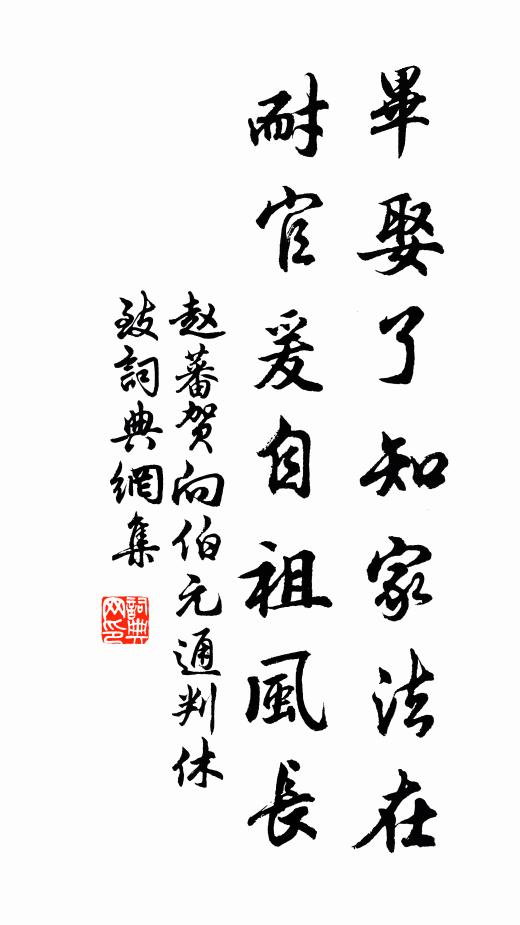 畢娶了知家法在
耐官爰自祖風長
赵蕃贺向伯元通判休
致詞典網集
詞典网印